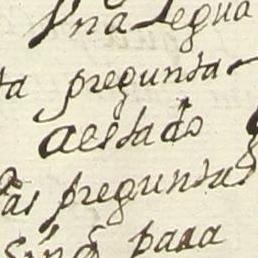 Vna Legua
ta pregunta
aestado
as preguntas
sinó para